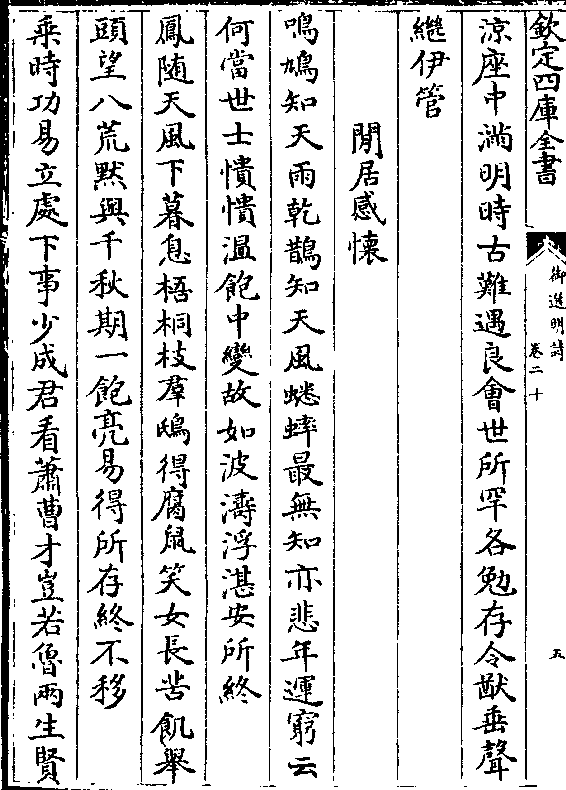 欽定四庫全書
御選明詩
卷二十
五
涼座中滿明時古難遇良會世所罕各勉存令猷垂聲
繼伊管
閒居感懷
鳴鳩知天雨乾鵲知天風蟋蟀最無知亦悲年運窮云
何當世士憒憒溫飽中變故如波濤浮湛安所終
鳳隨天風下暮息梧桐枝羣鴟得腐鼠笑女長苦飢舉
頭望八荒默與千秋期一飽亮易得所存終不移
乘時功易立處下事少成君看蕭曹才豈若魯兩生賢